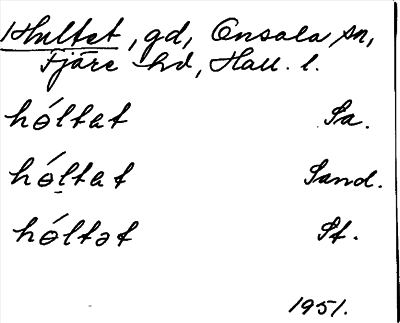 Hultet, gd, Onsala sn,
Fjäre hd, Hall. l.
hóltet Sa.
hóltet Sand.
hóltət St.
1951.